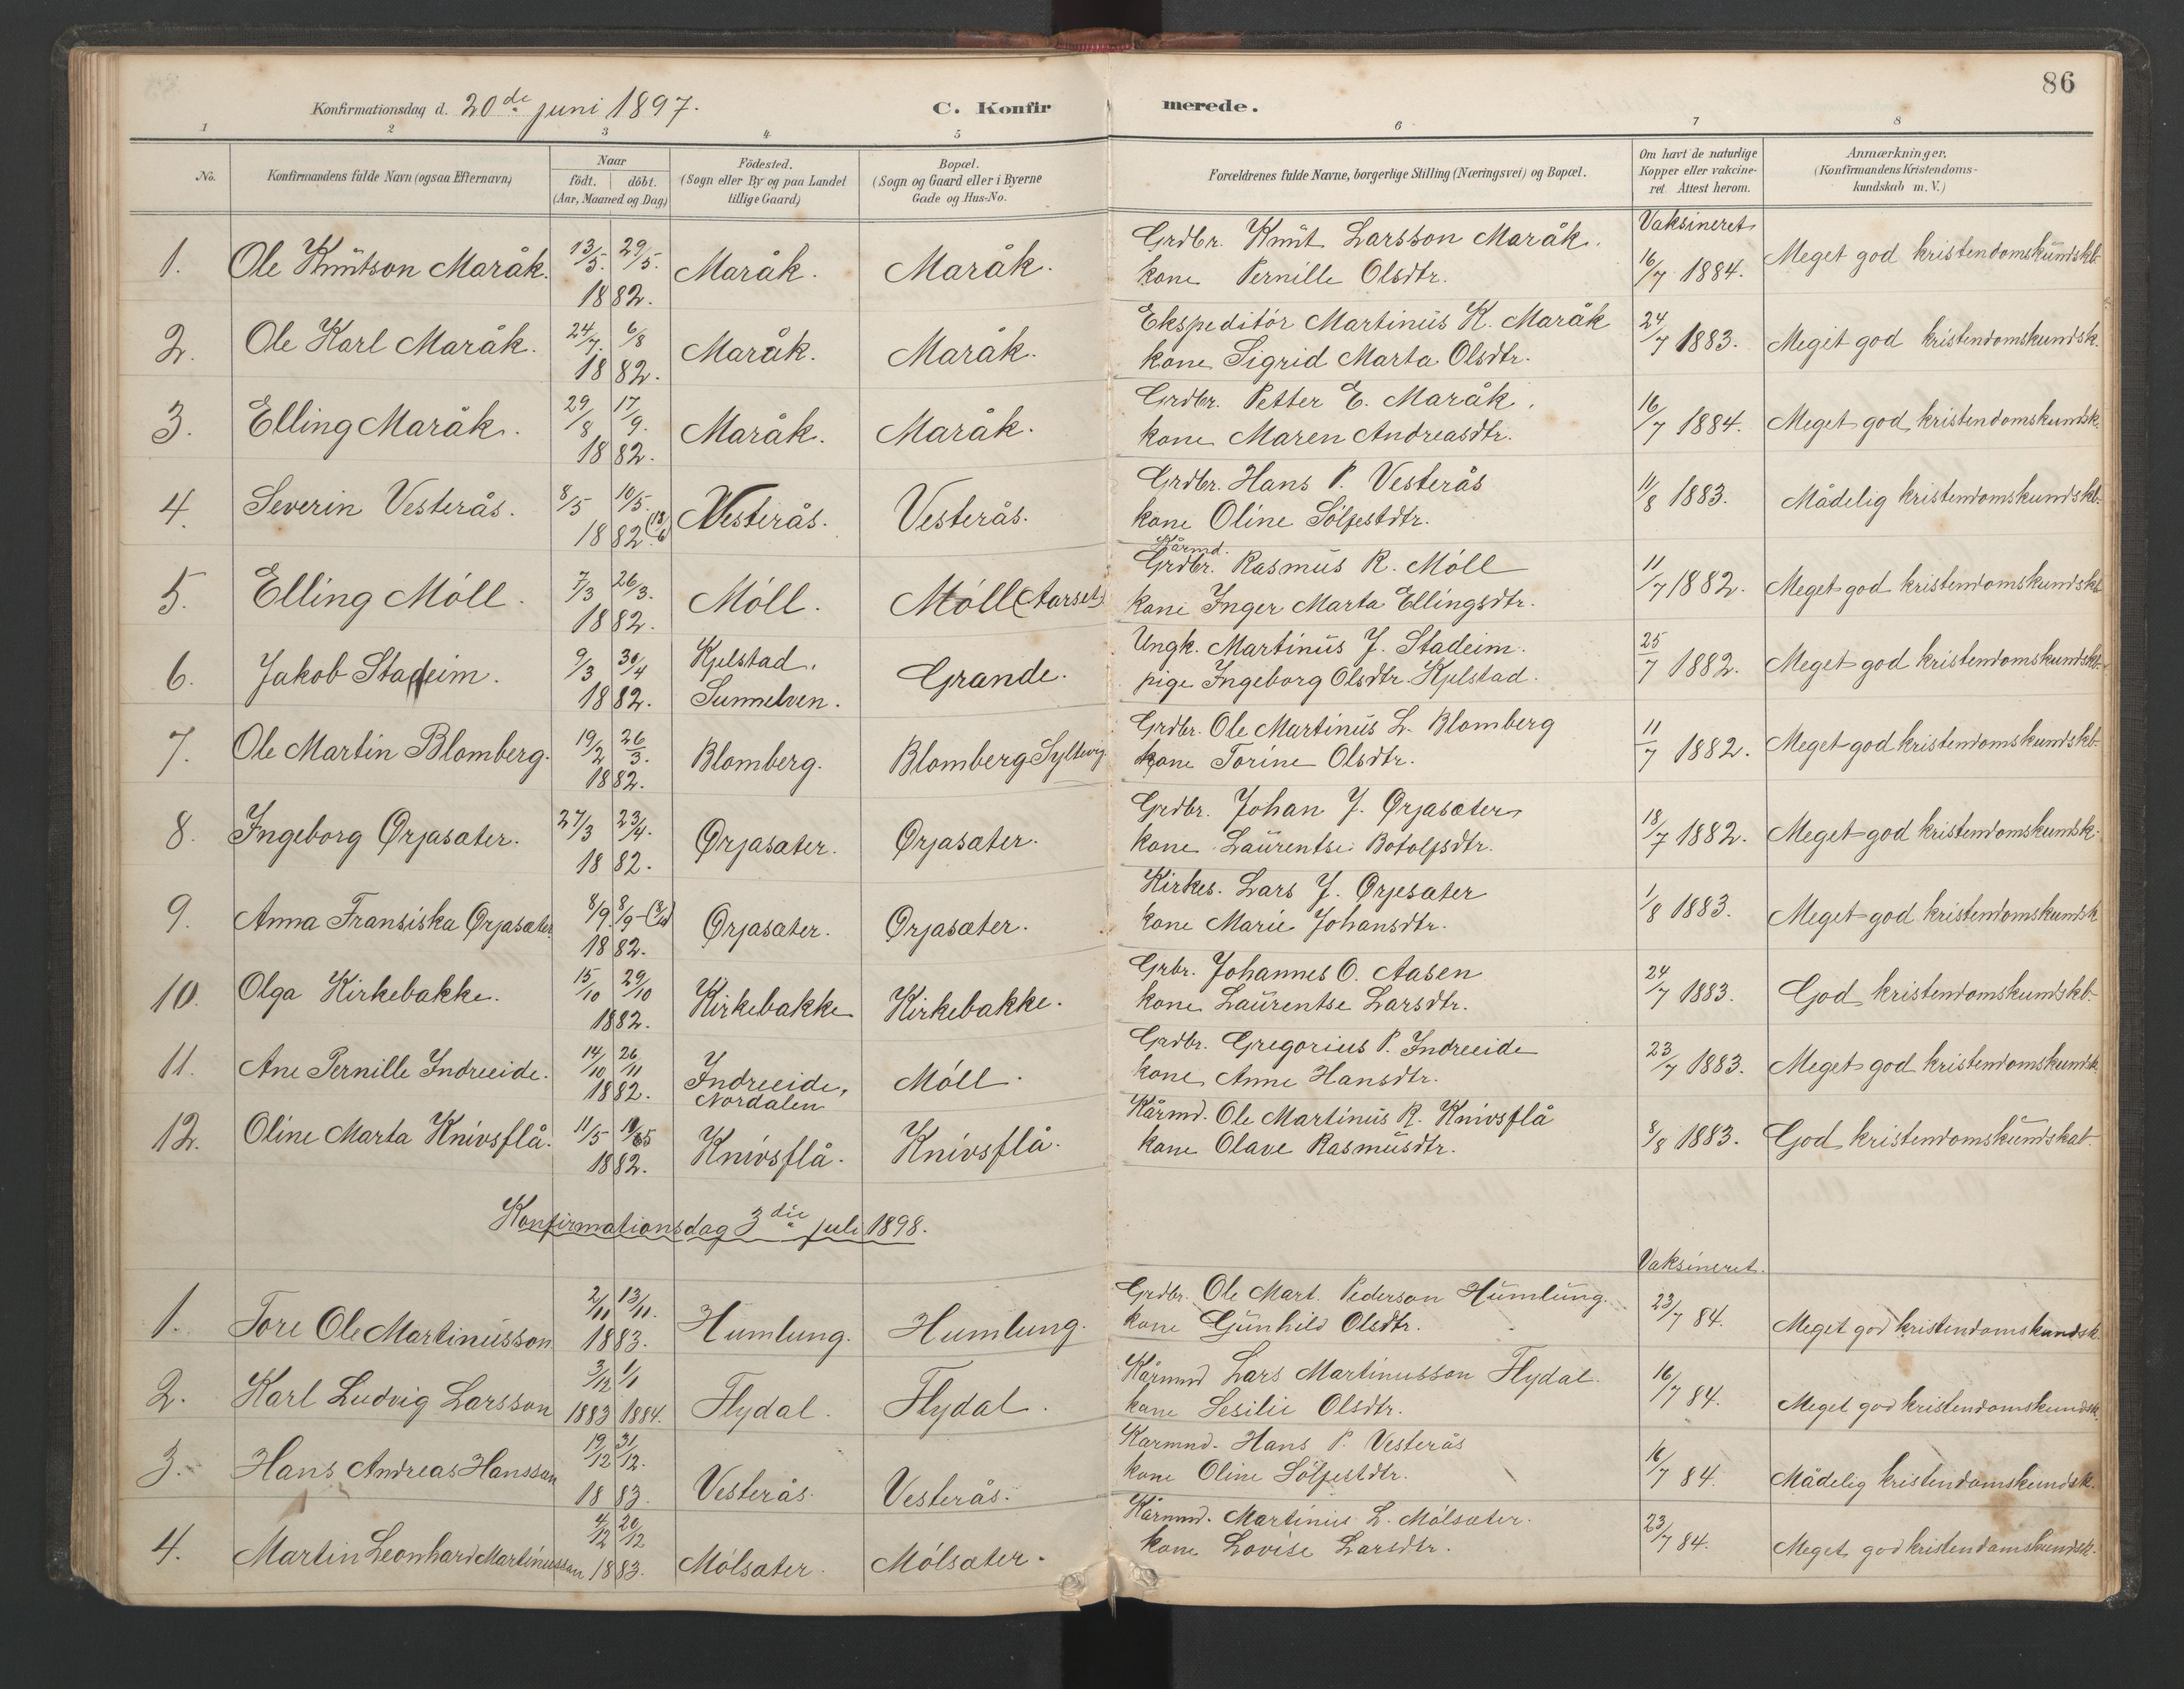 86
Konfirmationsdag d. 20de juni 1897. C. Konfirmerede.
1 2 3 4 5 6 7 8
No. Konfirmandens fulde Navn (ogsaa Efternavn) Naar födt. döbt. (Aar, Maaned og Dag) Födested. (Sogn eller By og paa Landet tillige Gaard) Bopæl. (Sogn og Gaard eller i Byerne Gade og Hus-No. Forældrenes fulde Navne, borgerlige Stilling (Næringsvei) og Bopæl. Om havt de naturlige Kopper eller vakcineret. Attest herom. Anmærkninger. (Konfirmandens Kristendomskundskab m. V.)
Vaksineret
1. Ole Knutson Maråk. 13/5. 29/5. 1882. Maråk. Maråk. Grdbr. Knut Larsson Maråk. 16/7 1884. Meget god kristendomskundskb.
kone Pernille Olsdtr.
2. Ole Karl Maråk. 24/7. 6/8 1882. Maråk. Maråk. Ekspeditör Martinus K. Maråk 24/7 1883. Meget god kristendomskundsk.
kone Sigrid Marta Olsdtr.
3. Elling Maråk. 29/8 17/9. 1882. Maråk. Maråk. Grdbr. Petter E. Maråk. 16/7 1884. Meget god kristendomskundsk.
kone Maren Andreasdtr.
4. Severin Vesterås. 8/5 10/5. 1882. (18/6) Vesterås. Vesterås. Grdbr. Hans P. Vesterås 11/8 1883. Mådelig kristendomskundskb.
kone Oline Sölfestdtr.
Kårmd.
5. Elling Möll. 7/3 26/3. 1882. Möll. Möll (Aarset) Grdbr. Rasmus R. Möll 11/7 1882. Meget god kristendomskundskb
kone Inger Marta Ellingsdtr.
6. Jakob Stadeim. 9/3 30/4 1882. Kjelstad, Sunnelven. Grande. Ungk. Martinus J. Stadeim. 25/7 1882. Meget god kristendomskundskb.
pige Ingeborg Olsdtr. Kjelstad.
7. Ole Martin Blomberg. 19/2 26/3. 1882. Blomberg. Blomberg Syltevig Grdbr. Ole Martinus L. Blomberg 11/7 1882. Meget god kristendomskundskb.
kone Torine Olsdtr.
8. Ingeborg Ørjasæter. 27/3 23/4. 1882. Ørjasæter. Ørjasæter. Grdbr. Johan J. Ørjasæter 18/7 1882. Meget god kristendomskundsk.
kone Laurentse Botolfsdtr.
9. Anna Fransiska Ørjasæter 8/9. 8/9 1882. Ørjasæter. Ørjasæter. Kirkes. Lars J. Ørjesæter 1/8 1883. Meget god kristendomskundsk
kone Marie Johansdtr.
10. Olga Kirkebakke. 15/10 29/10 1882. Kirkebakke Kirkebakke. Grbr. Johannes O. Aasen 24/7 1883. God kristendomskundskb.
kone Laurentse Larsdtr.
11. Ane Pernille Indreeide. 14/10 26/11 1882. Indreeide, Nordalen Möll. Grdbr. Gregorius P. Indreeide 23/7 1883. Meget god kristendomskundsk.
kone Anne Hansdtr.
12. Oline Marta Knivsflå. 11/5 1882. Knivsflå. Knivsflå. Kårmd. Ole Martinus R. Knivsflå 8/8 1883. God kristendomskundskab
kone Olave Rasmusdtr.
Konfirmationsdag 3die juli 1898.
Vaksineret.
1. Tore Ole Martinusson 2/11 13/11. 1883. Humlung. Humlung. Grdbr. Ole Mart. Pederson Humlung. 23/7 84. Meget god kristendomskundsk
kone Gunhild Olsdtr.
2. Karl Ludvig Larsson 3/12 1883 1/1 1884. Flydal. Flydal. Kårmnd Lars Martinusson Flydal. 16/7 84. Meget god kristendomskundsk.
kone Sesilie Olsdtr.
3. Hans Andreas Hansson 19/12 31/12. 1883. Vesterås. Vesterås. Kårmnd. Hans P. Vesterås 16/7 84. Mådelig kristendomskundsk.
kone Oline Sölfestdtr.
4. Martin Leonhard Martinusson 4/12 20/12 1883. Mölsæter. Mölsæter. Kårmnd. Martinus L. Mölsæter. 23/7 84. Meget god kristendomskundsk.
kone Lovise Larsdtr.